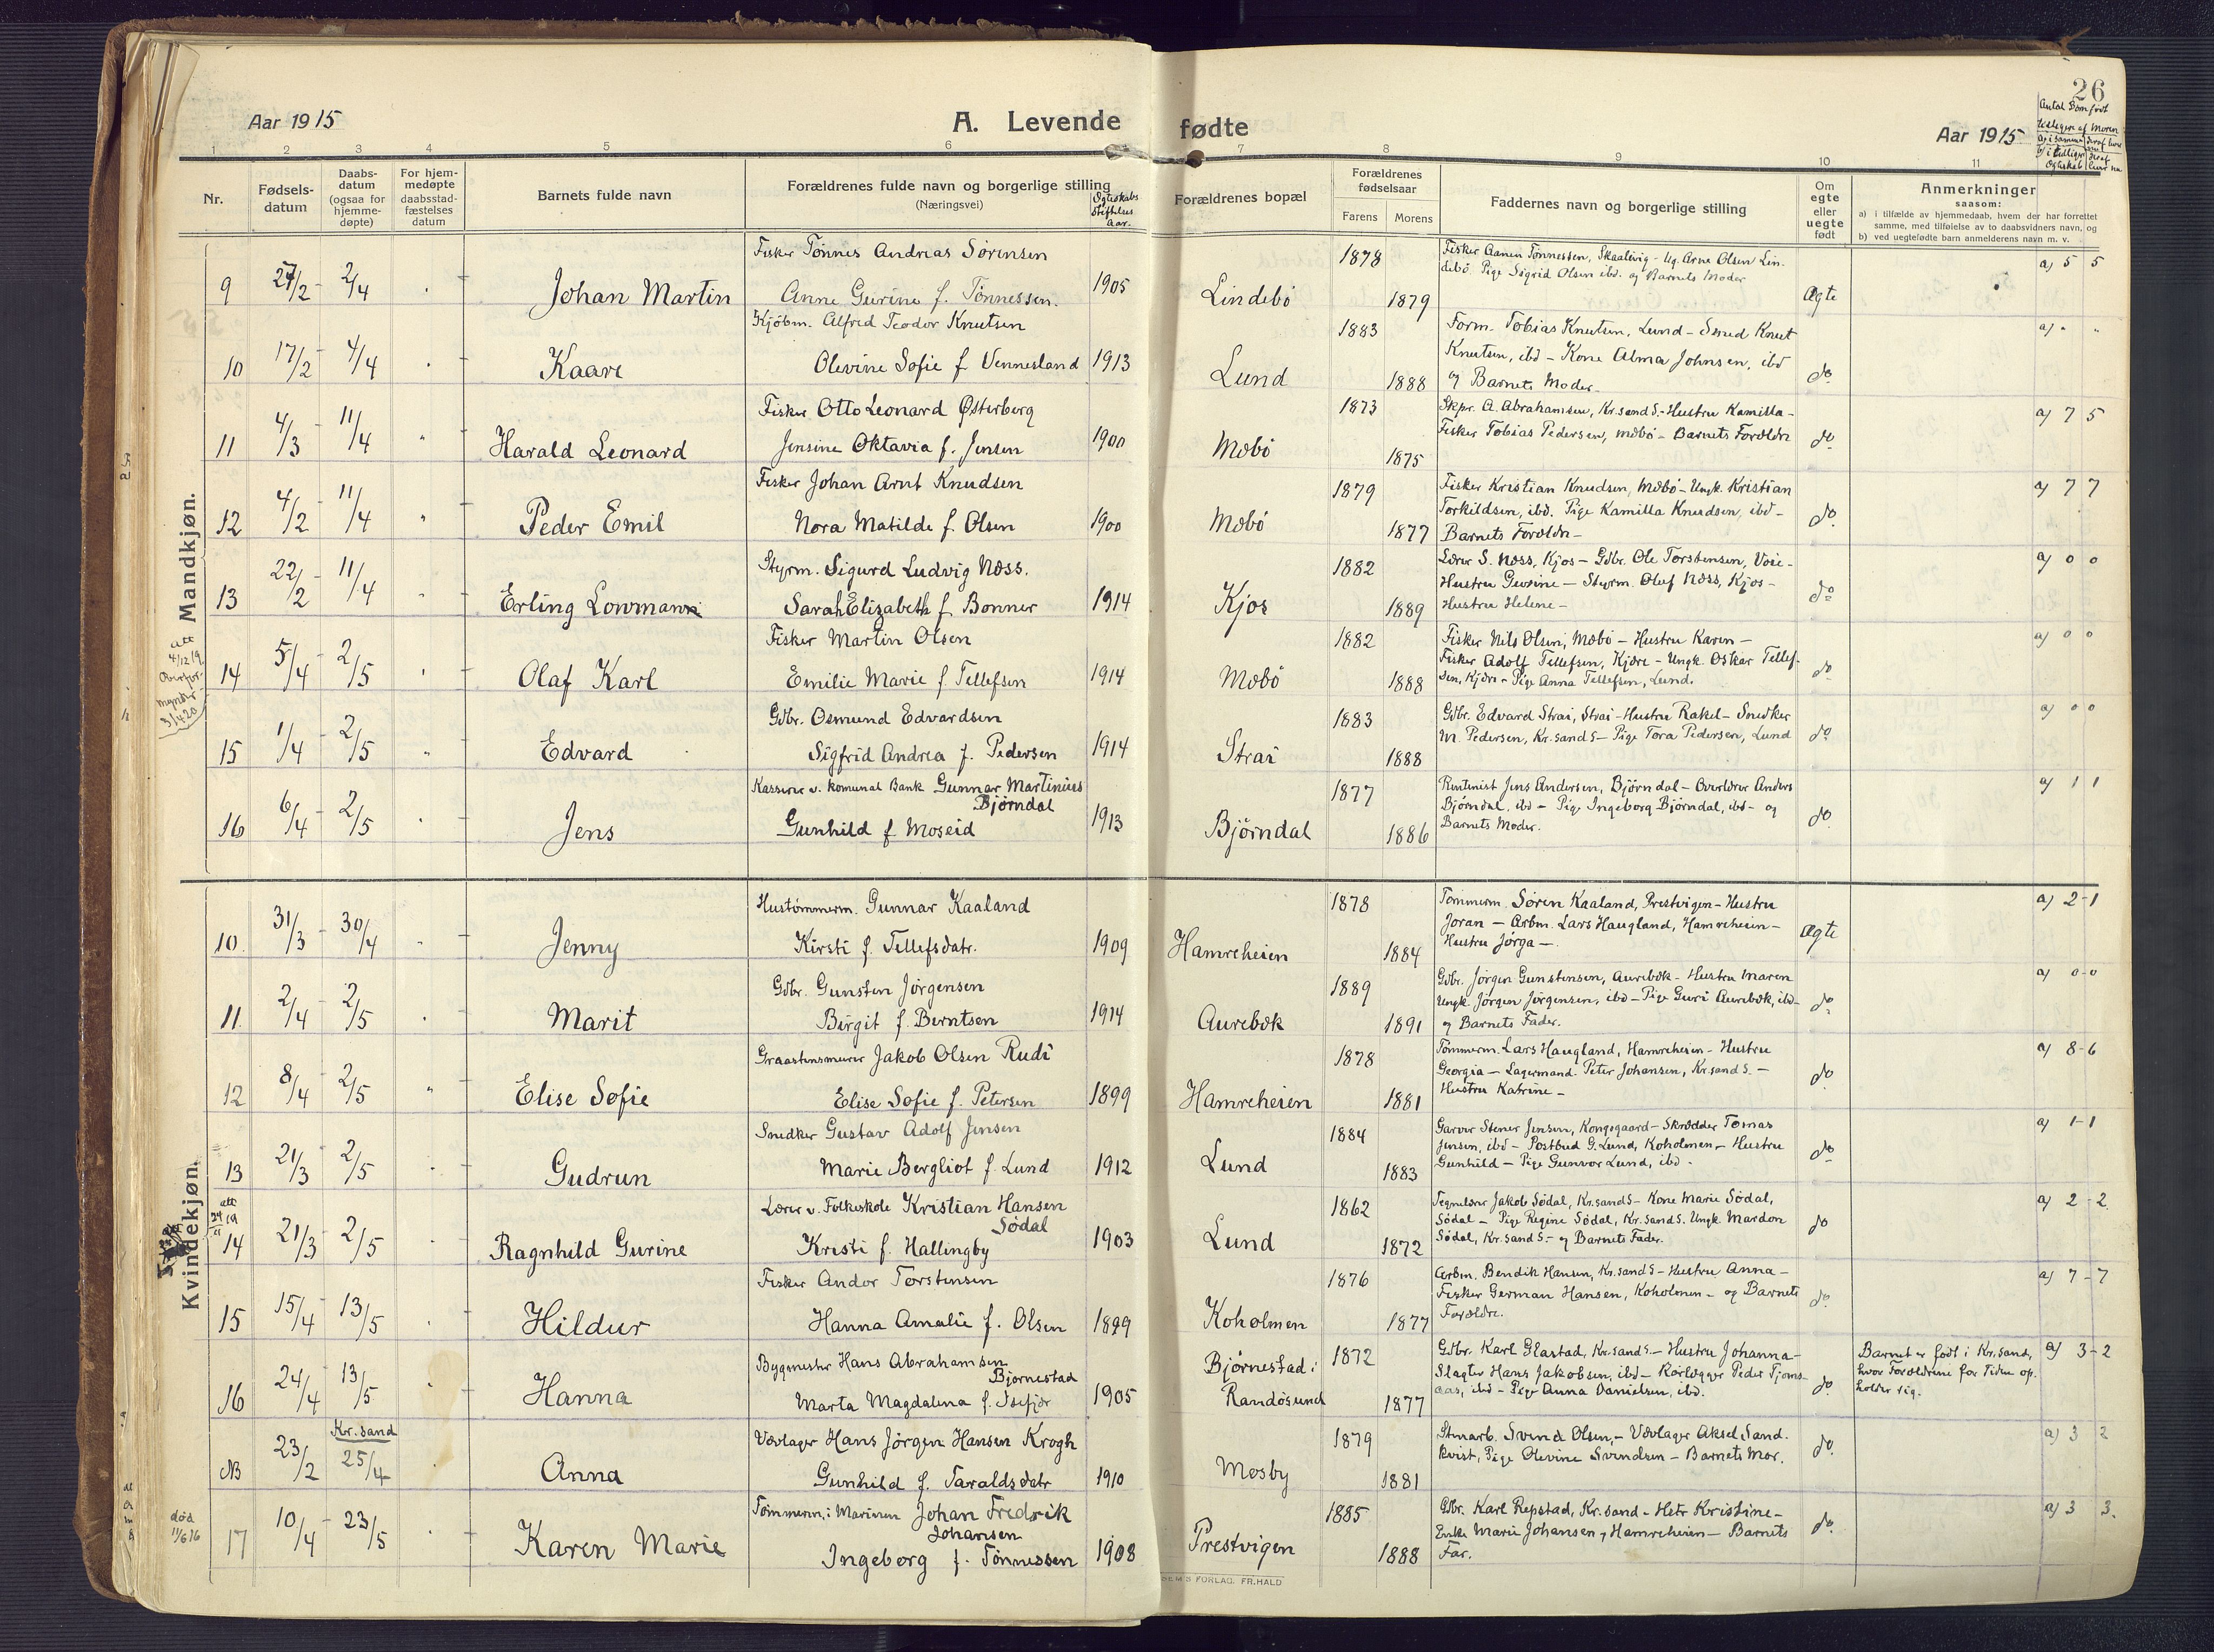 26
Aar 1915
A. Levende fødte
Aar 1915
Antal Børn født
1 2 3 4 5 6 7 8 9 10 11
Nr.
Fødsels-
datum
Daabs-
datum
(ogsaa for
hjemme-
døpte)
For hjem-
medøpte
daabsstad-
fæstelses
datum
Barnets fulde navn
Forældrenes fulde navn og borgerlige stilling
(Næringsvei)
Forældrenes bopæl
Forældrenes
fødselsaar
Farens Morens
Faddernes navn og borgerlige stilling
Om
egte
eller
uegte
født
Anmerkninger
saasom:
a) i tilfælde av hjemmedaab, hvem der har forrettet
samme, med tilføielse av to daabsvidners navn, og
b) ved uegtefødte barn anmelderens navn m. v.
Mandkjøn.
Fisker Tønnes Andreas Sørensen 1878 Fisker Aanen Tønnessen, Skaalevig - Ug. Arne Olsen Lin-
debø. Pige Sigrid Olsen ibd. og Barnets Moder a) 5 5
9 27/2 - 2/4 Johan Martin Anne Gurine f. Tønnessen. 1905 Lindebø 1879 Ægte
Kjøbm. Alfred Teodor Knutsen 1883 Form. Tobias Knutsen, Lund - Smed Knut
Knutsen, ibd - Kone Alma Johnsen, ibd
10 17/2 - 4/4 Kaare Olevine Sofie f. Vennesland 1913 Lund 1888 og Barnets Moder. do
Fisker Otto Leonard Østerberg 1873 Skpr. A. Abrahamsen, Kr.sand S. - Hustru Kamilla - a) 7 5
11 4/3 - 11/4 Harald Leonard Jensine Oktavia f. Jensen 1900 Mæbø 1875 Fisker Tobias Pedersen, Mæbø - Barnets Forældre do
Fisker Johan Arnt Knudsen 1879 Fisker Kristian Knudsen, Mæbø - Ungk. Kristian a) 7 7
Torkildsen, ibd. Pige Kamilla Knudsen, ibd -
12 4/2 - 11/4 Peder Emil Nora Matilde f. Olsen 1900 Mæbø 1877 Barnets Forældre - do
Styrm. Sigurd Ludvig Næss. 1882 Lærer S. Næss, Kjos - Gdbr. Ole Torstensen, Voie - a) 0 0
Hustru Gurine - Styrm. Oluf Næss, Kjos -
13 22/2 - 11/4 Erling Lowmann Sarah Elizabeth f. Bonner 1914 Kjos 1889 Hustru Helene - do
Fisker Martin Olsen 1882 Fisker Nils Olsen, Mæbø - Hustru Karen - a) 0 0
Fisker Adolf Tellefsen, Kjære - Ungk. Oskar Tellef-
14 5/4 - 2/5 Olaf Karl Emilie Marie f. Tellefsen 1914 Mæbø 1888 sen, Kjære - Pige Anna Tellefsen, Lund. do
Gdbr. Osmund Edvardsen 1883 Gdbr. Edvard Strai, Strai - Hustru Rakel - Snedker a) 0 0
M. Pedersen, Kr.sand S - Pige Tora Pedersen, Lund
15 1/4 - 2/5 Edvard Sigfrid Andrea f. Pedersen 1914 Strai 1888 do
Kasserer v. komunal Bank Gunnar Martinius
Bjørndal 1877 Rentenist Jens Andersen, Bjørndal - Overlærer Anders a) 1 1
Bjørndal, ibd - Pige Ingeborg Bjørndal, ibd - og
16 6/4 - 2/5 Jens Gunhild f. Moseid 1913 Bjørndal 1886 Barnets Moder. do
Kvindekjøn.
Hustømmerm. Gunnar Kaaland 1878 Tømmerm. Søren Kaaland, Prestvigen - Hustru a) 2-1
Joran - Arbm. Lars Haugland, Hamreheien -
10. 31/3 - 30/4 Jenny Kirsti f. Tellefsdatr. 1909 Hamreheien 1884 Hustru Jørga -. Ægte
Gdbr. Gunsten Jørgensen 1889 Gdbr. Jørgen Gunstensen, Aurebæk - Hustru Maren a) 0-0
Ungk. Jørgen Jørgensen, ibd - Pige Guri Aurebæk, ibd -
11. 2/4 - 2/5 Marit Birgit f. Berntsen 1914 Aurebæk 1891 og Barnets Fader. do
Graastensmurer Jakob Olsen Rudi 1878 Tømmerm. Lars Haugland, Hamreheien - Hustru a) 8-6
Georgia - Lagermand. Peter Johansen, Kr.sand S. -
12 8/4 - 2/5 Elise Sofie Elise Sofie f. Petersen 1899 Hamreheien 1881 Hustru Katrine - do
Snedker Gustav Adolf Jensen 1884 Garver Stener Jensen, Kongsgaard - Skrædder Tomas a) 1-1
Jensen, ibd - Postbud G. Lund, Koholmen - Hustru
13 21/3 - 2/5 Gudrun Marie Bergliot f. Lund 1912 Lund 1883 Gunhild - Pige Gunvor Lund, ibd. do
Lærer v. Folkeskole Kristian Hansen
Sødal 1862 Tegnelærer Jakob Sødal, Kr.sand S - Kone Marie Sødal, a) 2-2.
Sødal - Pige Regine Sødal, Kr.sand S. Ungk. Mardon
14 21/3 - 2/5 Ragnhild Gurine Kristi f. Hallingby 1903 Lund 1872 Sødal, Kr.sand S. - og Barnets Fader. do
Fisker Andor Torstensen 1876 Arbm. Bendik Hansen, Kr.sand S - Hustru Anna - a) 7-7
Fisker German Hansen, Koholmen - og Barnets
15 15/4 - 13/5 Hildur Hanna Amalie f. Olsen 1899 Koholmen 1877 Forældre. do
Bygmester Hans Abrahamsen
Bjørnestad Bjørnestad i 1872 Gdbr. Karl Glastad, Kr.sand S - Hustru Johanna - Barnet er født i Kr.sand, a) 3-2
Slagter Hans Jakobsen, ibd - Rørlægger Peder Tjoms- hvor Forældrene for Tiden op-
16 24/4 13/5 Hanna Marta Magdalena f. Isefjær 1905 Randøsund 1877 aas, ibd - Pige Anna Danielsen, ibd. do holder sig.
Kr.sand
Vævlager Hans Jørgen Hansen Krogh 1879 Stenarb. Svend Olsen, - Vævlager Aksel Sand- a) 3 2
kvist, Pige Olevine Svendsen - Barnets Mor.
NB 23/2 25/4 Anna Gunhild f. Taraldsdatr 1910 Mosby 1881 do
Tømmerm. i Marinen Johan Fredrik
Johansen 1885 Gbr. Karl Repstad, Kr.sand - Hstr Kristine - a) 3 3.
Enke Marie Johansen, Hamreheien - Barnets
død
11/6 16
17 10/4 - 23/5 Karen Marie Ingeborg f. Tønnessen 1908 Prestvigen 1888 Far. do
FORLAG. FR. HALD